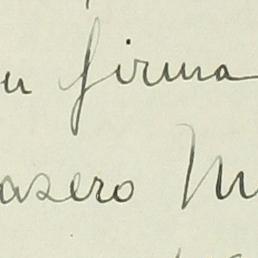 firma
asero M